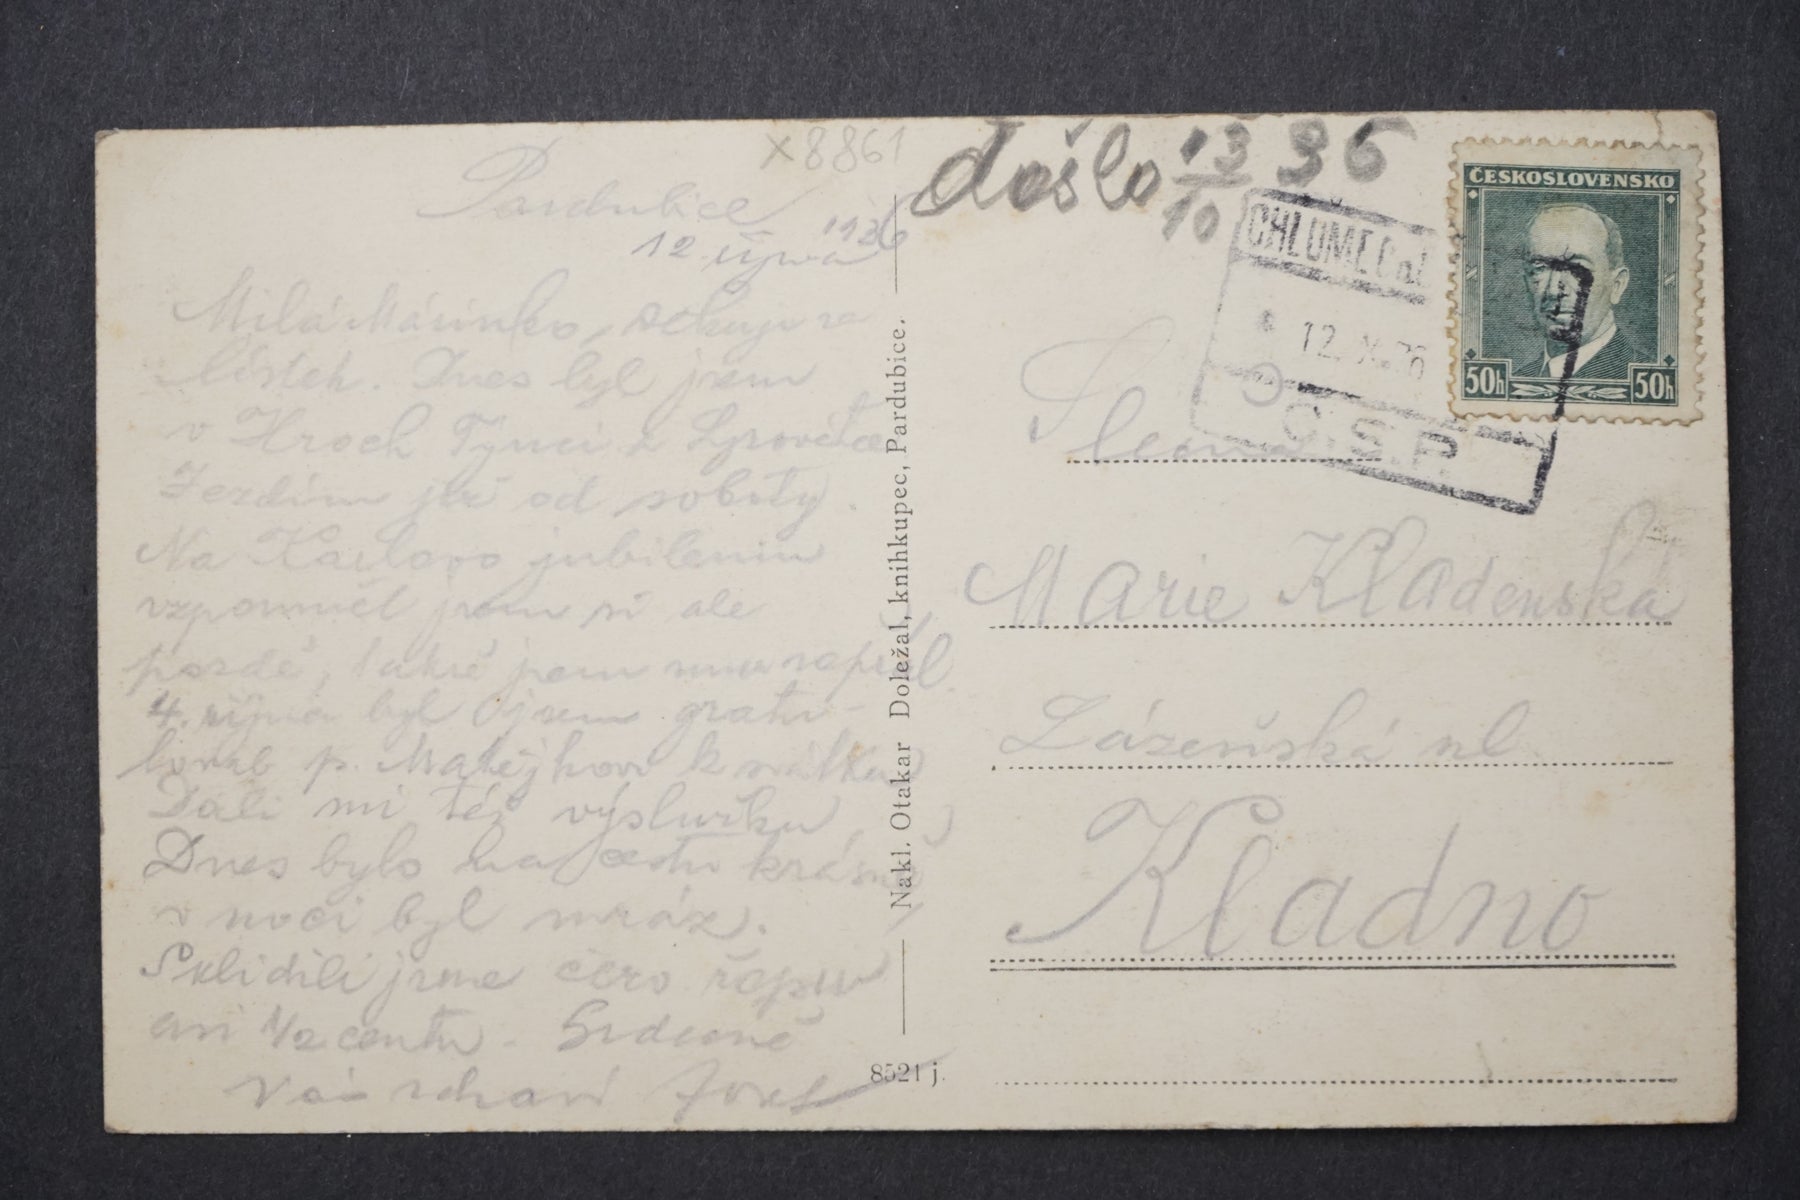 x 8861
Pardubice
12. října 1936
Milá Mařinko, děkuji za
lístek. Dnes byl jsem
v Hroch. Týnci z
Jezdím již od soboty.
Na Karlovo jubileum
vzpomněl jsem si ale
pozdě, takže jsem mu nepsal.
4. října byl jsem gratu-
lovat p. Matějkovi k svátku
Dali mi též výslužku,
Dnes bylo na cestu krásně
v noci byl mráz.
Sklidili jsme čero řepu
asi 1/2 centu. Srdečně
Vás zdraví Josef
Nakl. Otakar Doležal, knihkupec, Pardubice.
8521 j.
došlo 13/10 36
ČESKOSLOVENSKO
50h 50h
CHLUMEC n.
12. X. 36
Č.S.P.
Slečna
Marie Kladenská
Lázeňská ul.
Kladno